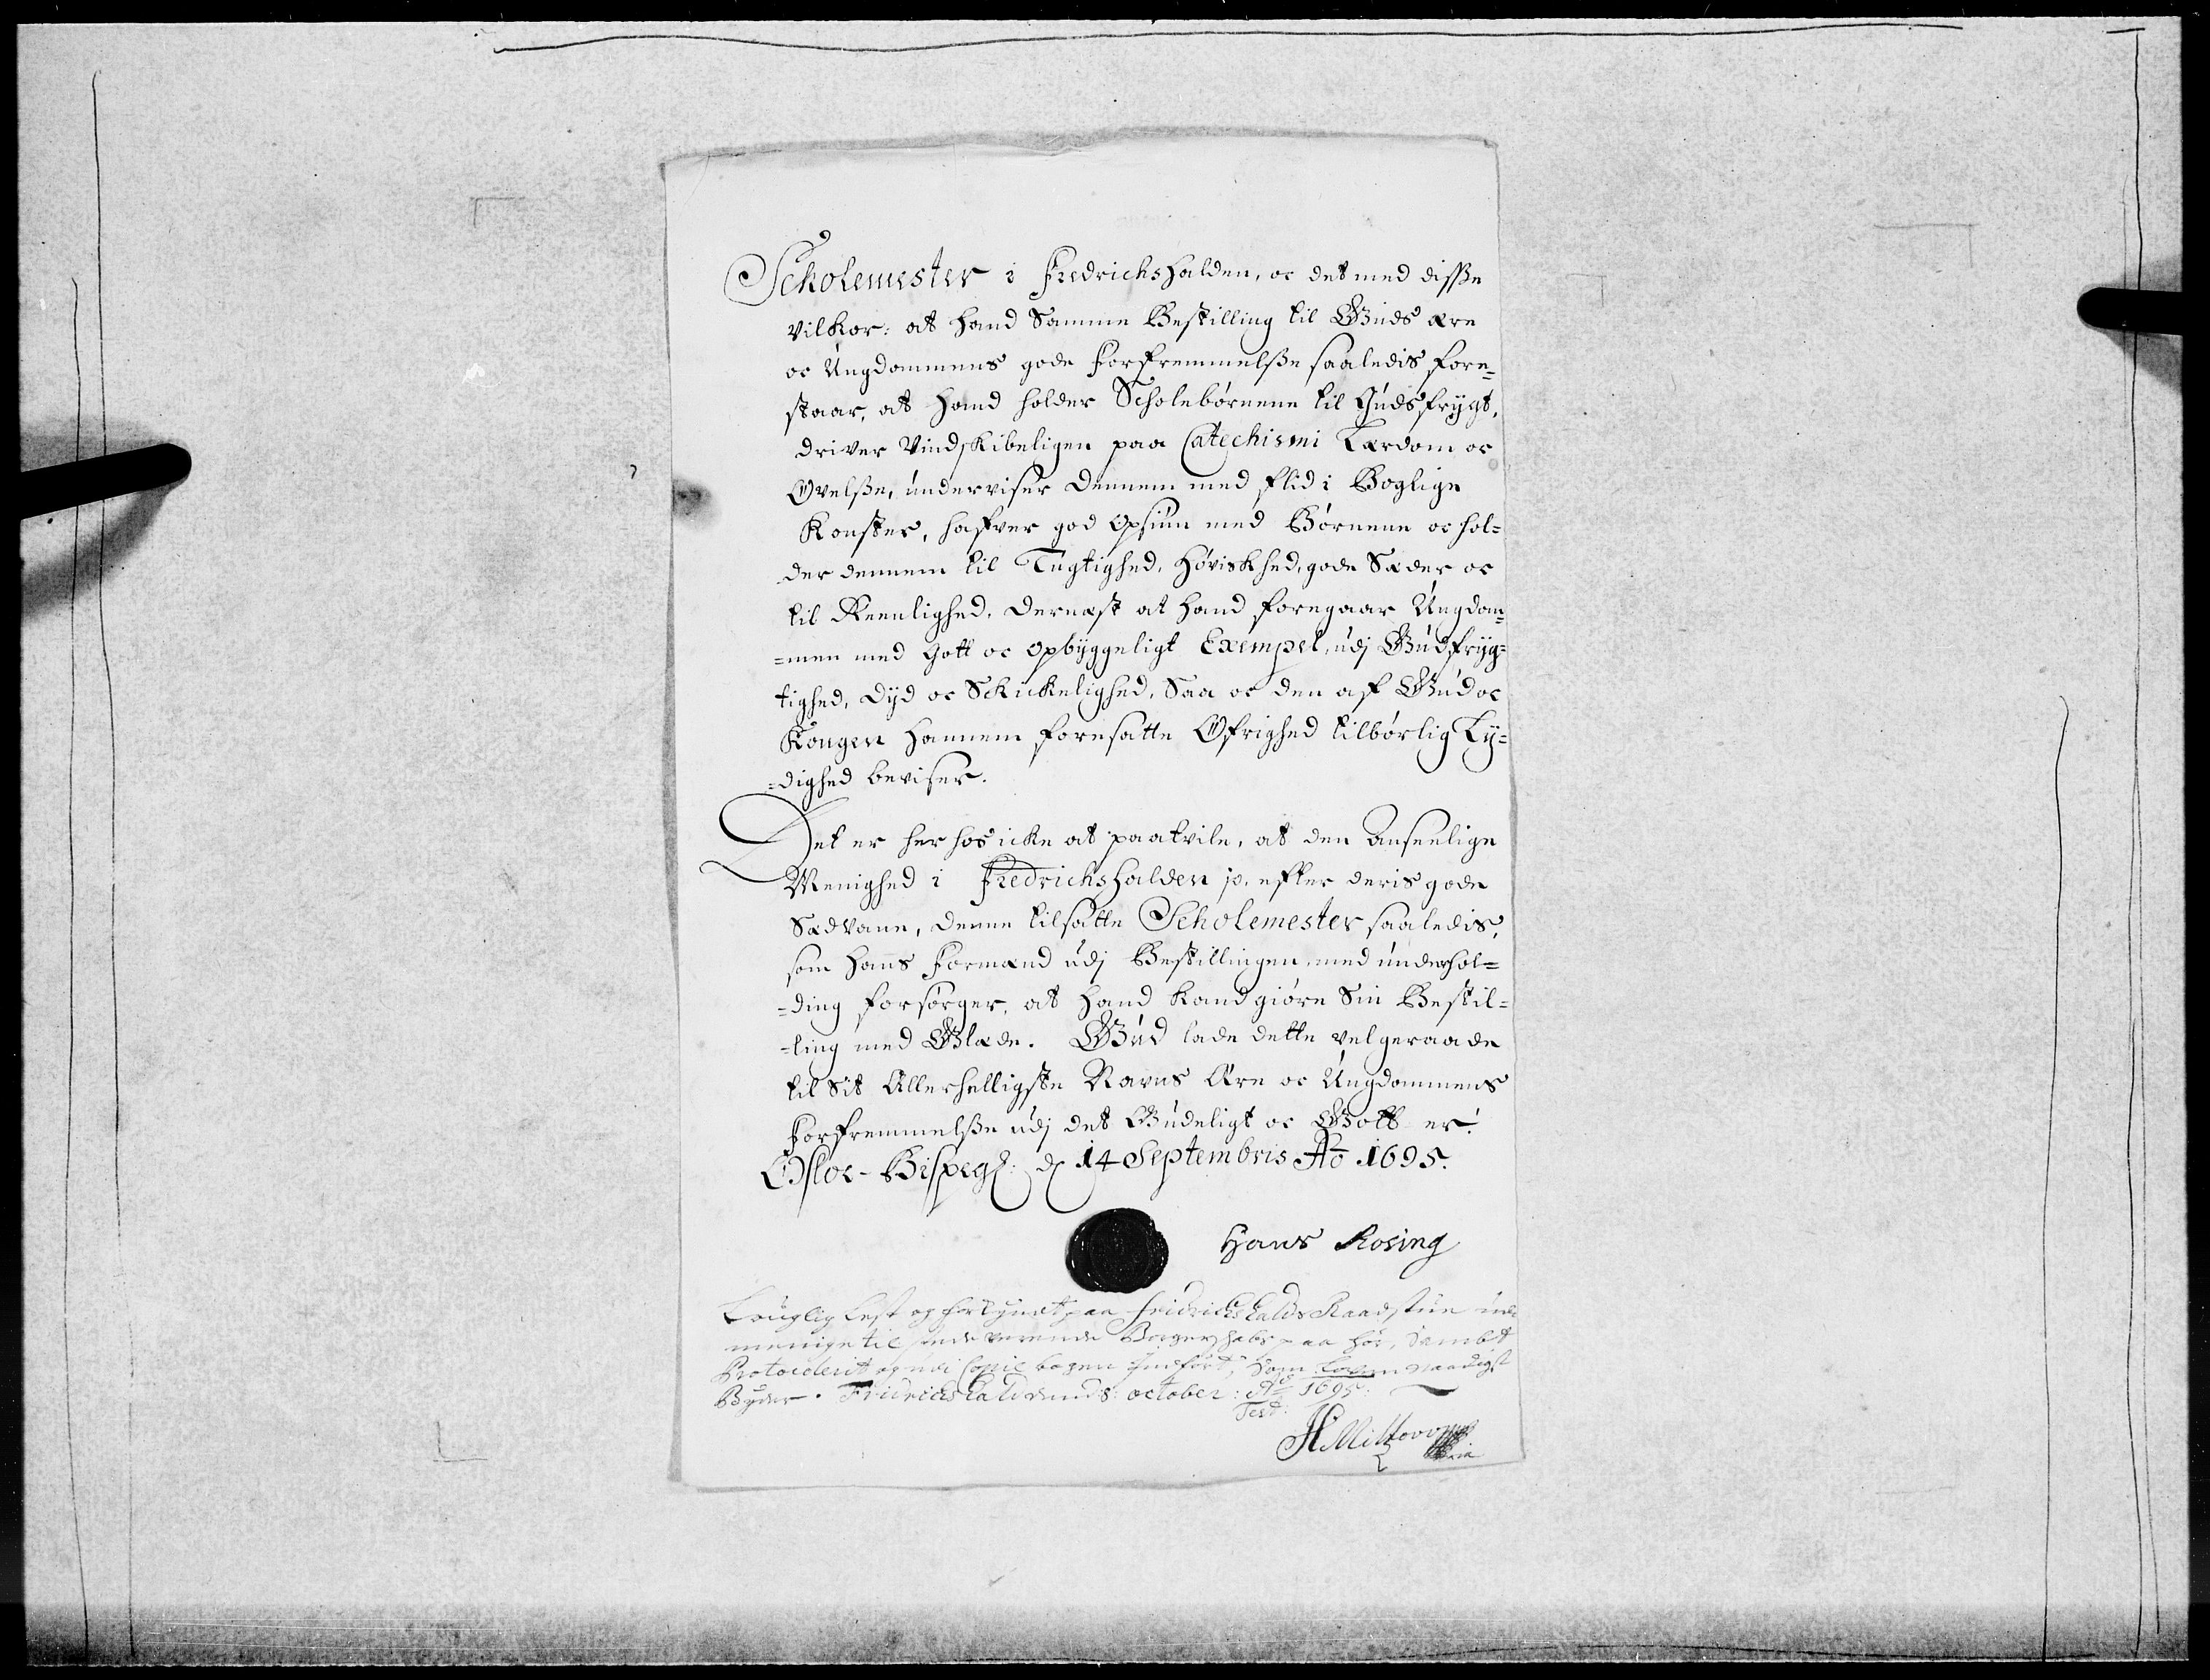 Scholemester i Fredrichshalden, oc det med disse
vilkor: at hand Samme Bestilling til Guds ære
oc Ungdommens gode Forfremmelsse saaledis fore¬
staar, at Hand holder Scholebørnene til Gudsfrygt,
driver Vindskibeligen paa Catechismi Lærdom oc
Øvelsse, underviser dennem med flid i Boglige
Konster, hafver god Opsiun med Børnene oc hol=
der dennem til Tugtighed, Høviskhed, gode Sæder oc
til Reenlighed. Dernæst at Hand foregaar Ungdom=
=men med Gott oc opbyggeligt Exempel, udj Gudfryg=
tighed, Dyd oc Skickelighed, Saa oc den af Gud oc
Kongen Hannem foresatte Øfrighed tilbørlig Ly=
=dighed beviser.
Det er herhos icke at paatvile, at den Anseelige
Menighed i Fredrichshalden jo, efter deris gode
Sædvane, denne tilsatte Scholemester saaledis,
som Hans Formænd udj Bestillingen, med underhol=
=ding forsørger, at Hand kand giøre Sin Bestil=
=ling med Glæde. Gud lade dette vel geraade
til Sit Allerhelligste Navns Ære oc Ungdommens
Forfremmelsse udj det Gudeligt oc Gott er.
Osloe-Bispeg: d 14 Septembris Ao 1695.
Hans Rosing
Louglig lest og forkyndt paa Fridrichshalds Raadstue
menige til stede værende Borgerskabs paa hør, Sambt
Protocolerit og udi Copie bogen Indført, Som Loven naadigst
Byder. Fridrichshald October: Ao 1695.
Test: